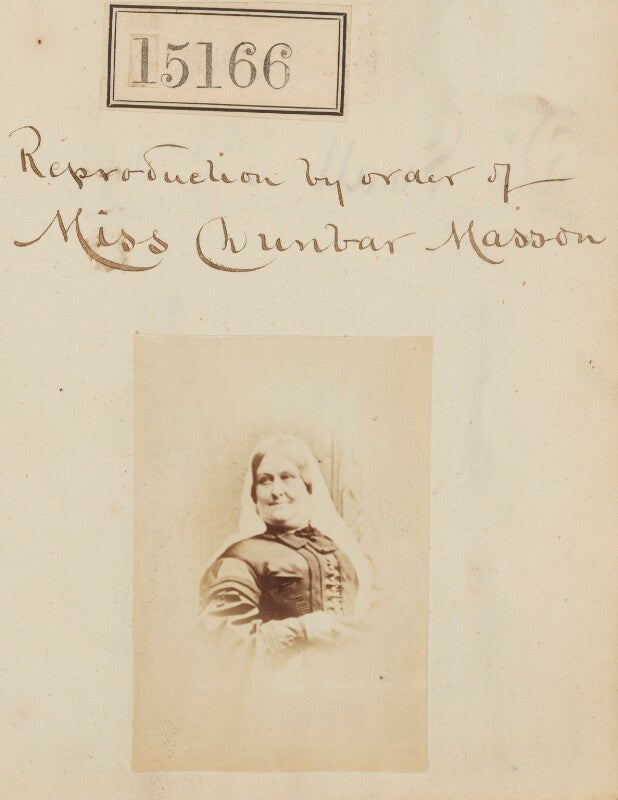 15166
Reproduction by order of
Miss Dunbar Masson